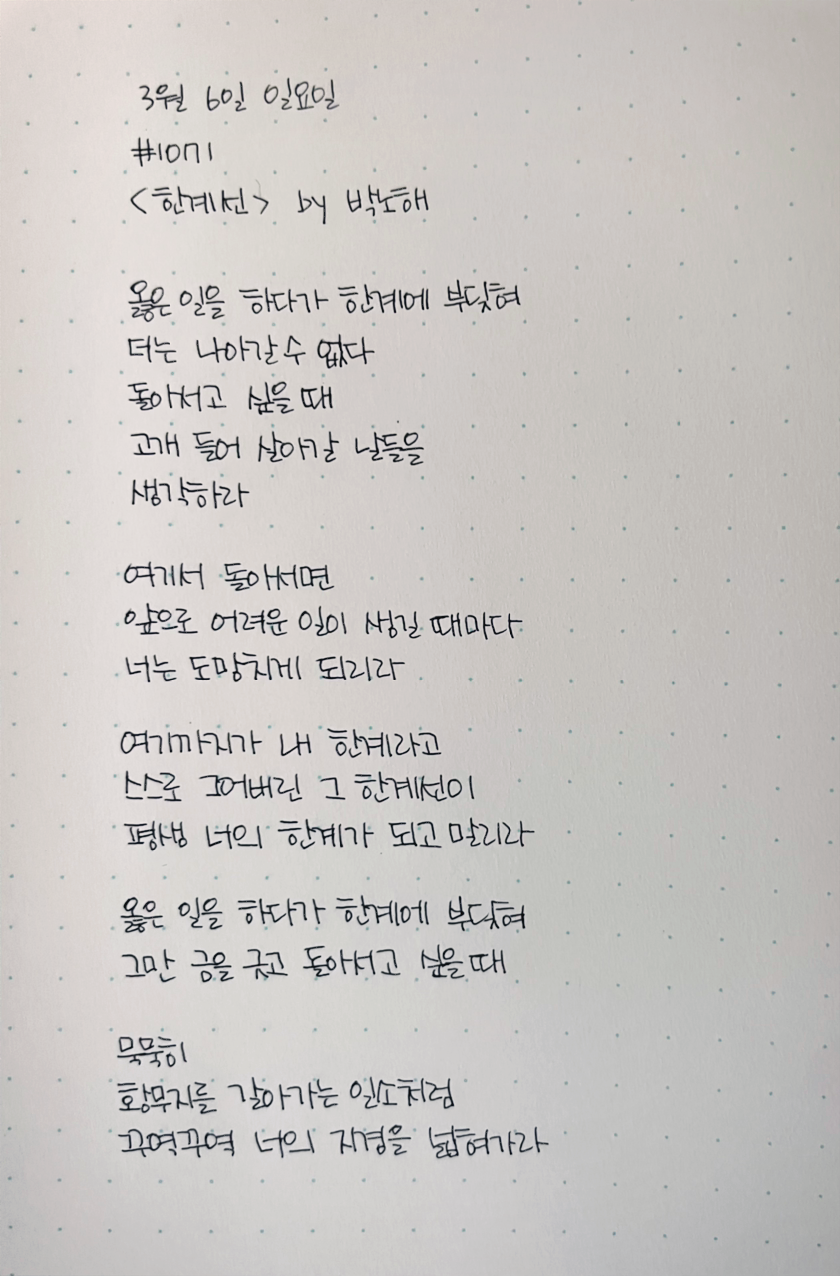 3월 6일 일요일
#1071
<한계선> by 박노해
옳은 일을 하다가 한계에 부딪혀
더는 나아갈 수 없다
돌아서고 싶을 때
고개 들어 살아갈 날들을
생각하라
여기서 돌아서면
앞으로 어려운 일이 생길 때마다
너는 도망치게 되리라
여기까지가 내 한계라고
스스로 그어버린 그 한계선이
평생 너의 한계가 되고 말리라
옳은 일을 하다가 한계에 부딪혀
그만 금을 긋고 돌아서고 싶을 때
묵묵히
황무지를 갈아가는 일소처럼
꾸역꾸역 너의 지경을 넓혀가라